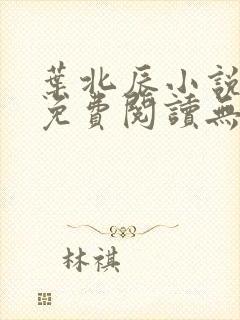 葉北辰小說
免費閱讀無
林祺